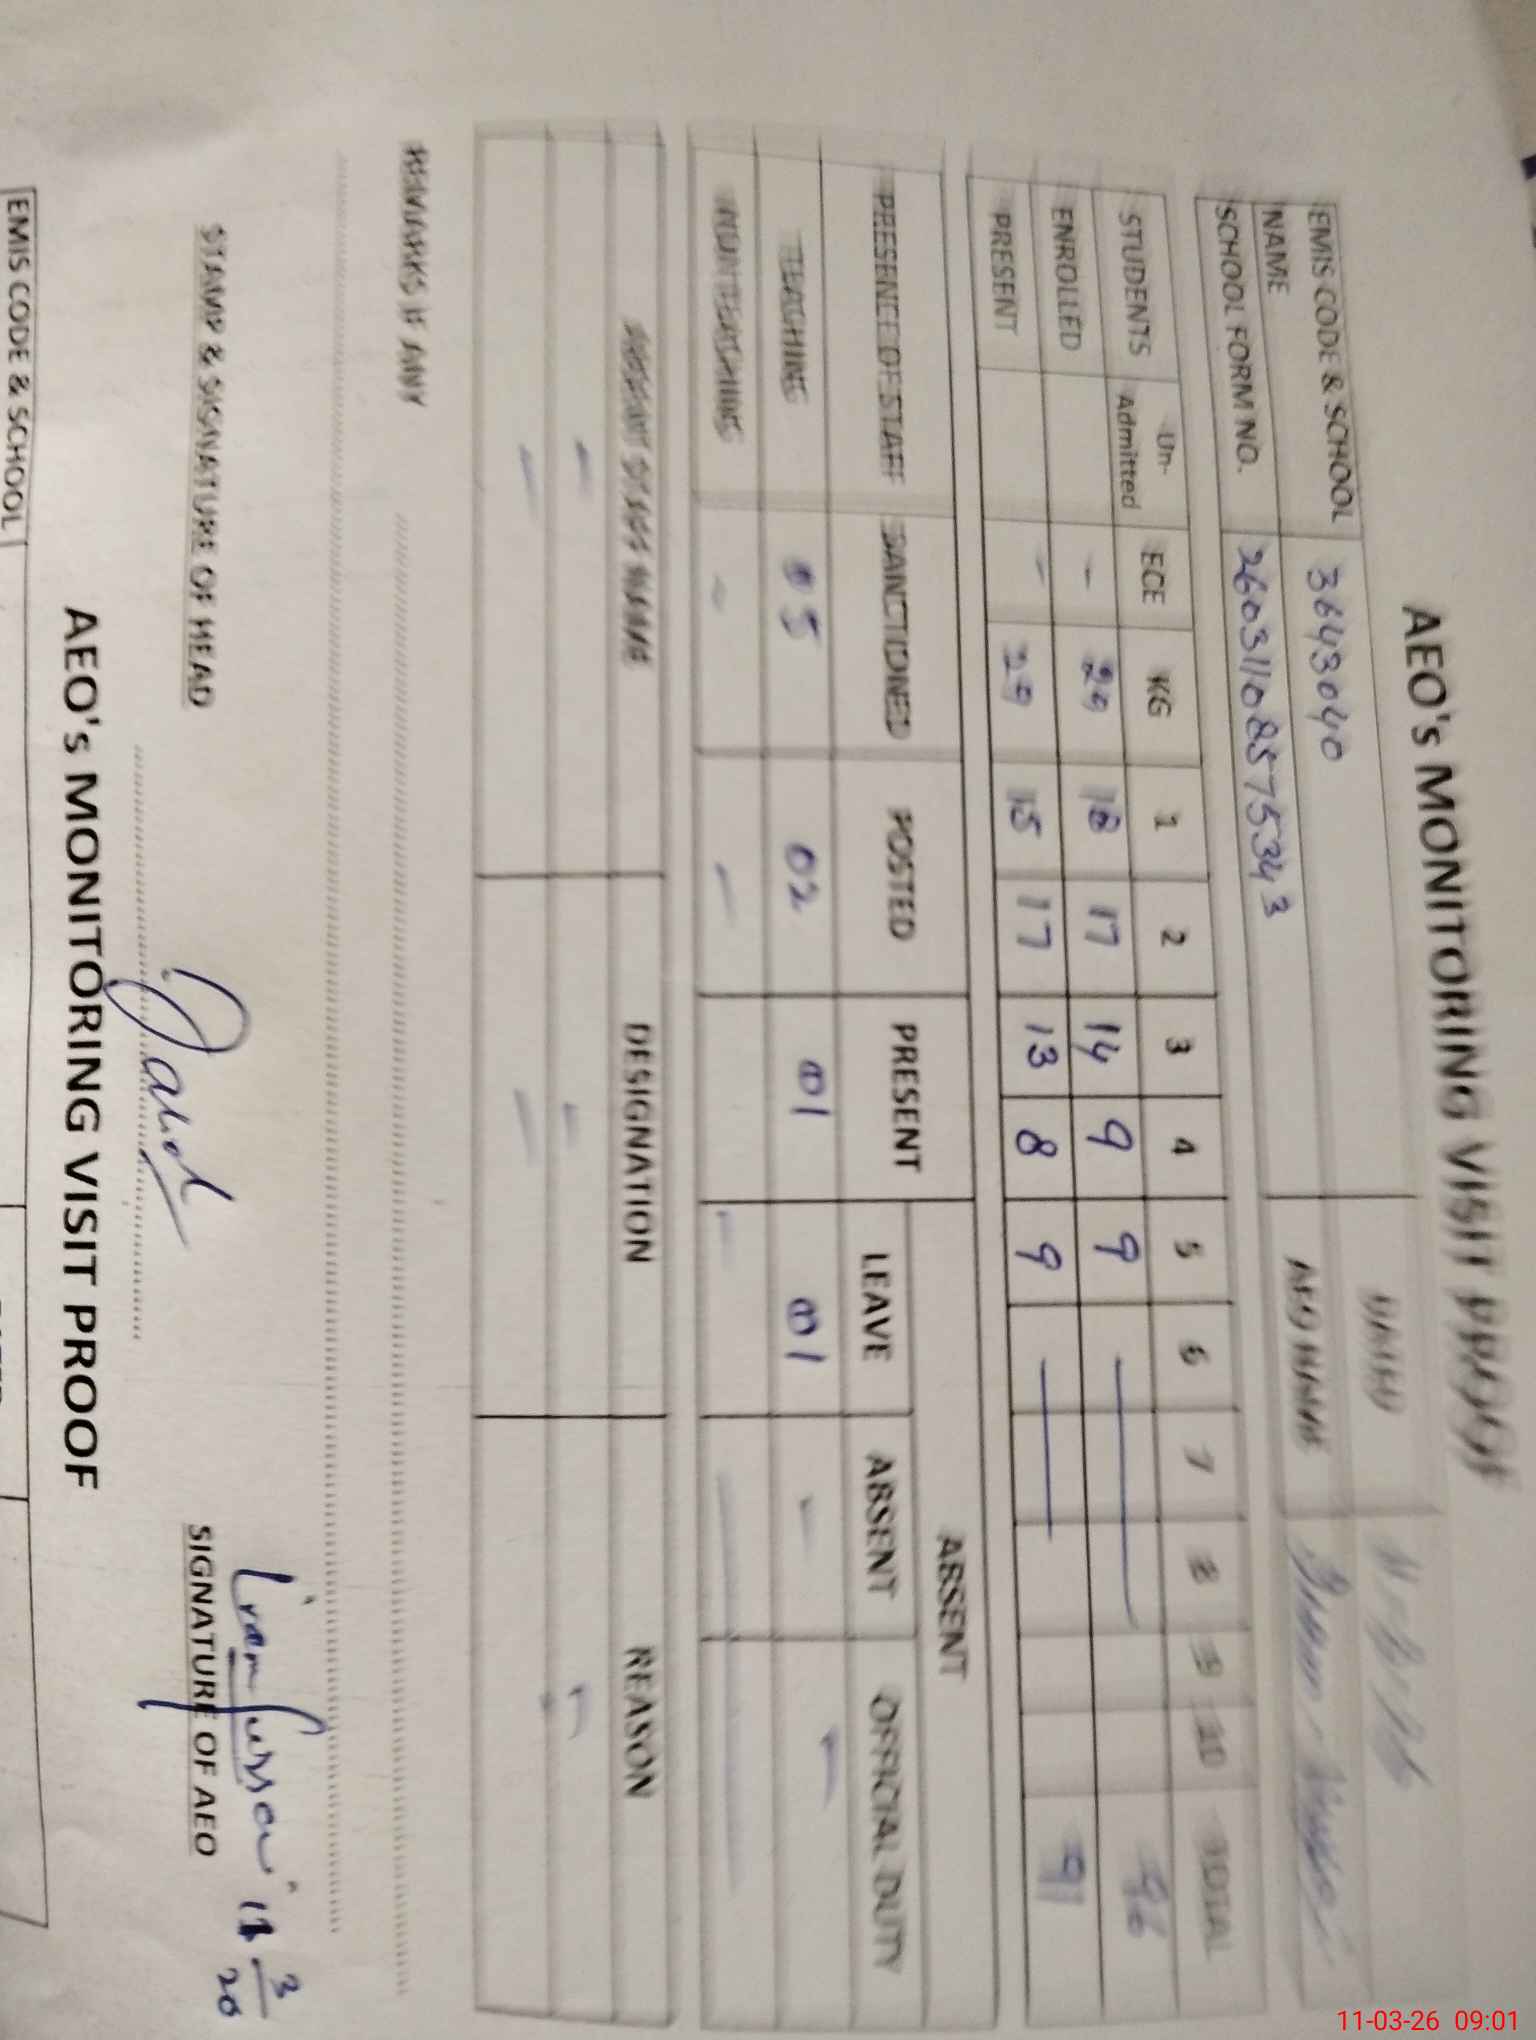 AEO's MONITORING VISIT PROOF
EMIS CODE & SCHOOL NAME 3643040
SCHOOL FORM NO. 26031108575343 AEO NAME
STUDENTS Un-Admitted ECE KG 1 2 3 4 5 6 7 8 9 10 TOTAL
ENROLLED - 29 18 17 14 9 9 96
PRESENT - 29 15 17 13 8 9 91
PRESENCE OF STAFF SANCTIONED POSTED PRESENT ABSENT
LEAVE ABSENT OFFICIAL DUTY
TEACHING 05 02 01 01 -
NON TEACHING - -
ABSENT STAFF NAME DESIGNATION REASON
REMARKS IF ANY
STAMP & SIGNATURE OF HEAD
SIGNATURE OF AEO
AEO's MONITORING VISIT PROOF
EMIS CODE & SCHOOL
11-03-26 09:01